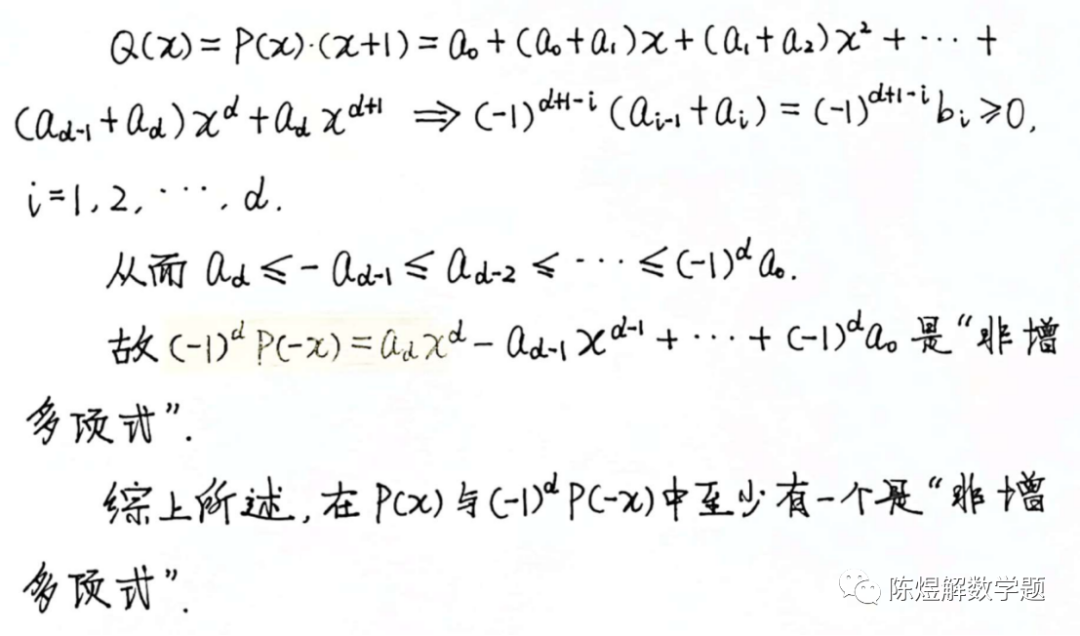 Q(x)=P(x)·(x+1)=a₀+(a₀+a₁)x+(a₁+a₂)x²+⋯+
(a_{d-1}+a_d)x^d+a_d x^{d+1} ⇒(-1)^{d+1-i}(a_{i-1}+a_i)=(-1)^{d+1-i}b_i≥0,
i=1,2,⋯,d.
从而 a_d≤-a_{d-1}≤a_{d-2}≤⋯≤(-1)^d a₀.
故(-1)^d P(-x)=a_d x^d-a_{d-1}x^{d-1}+⋯+(-1)^d a₀ 是“非增
多项式”.
综上所述,在P(x)与(-1)^d P(-x)中至少有一个是“非增
多项式”.
陈煜解数学题